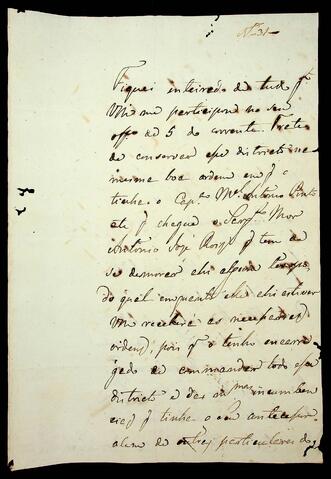 Nº 31
Fiquei inteirado de tudo q
Vm me participa no seu
offº de 5 do corrente. Trate
de conservar esse districto na
mesma boa ordem em q o
tinha o Capᵐ Mᵉˡ Antonio Pinto
até q chegue o Sargᵗᵒ Mor
Antonio José Roiz q tem de
se demorar ahi algum tempo,
do qual emquanto elle ahi estiver
Vm receberá as necessarias
ordens, pois q o tenho encarre
gado de commandar todo esse
districto e das mᵐᵃˢ incumben
cias q tinha o seu antecessor
alem de outras particulares de